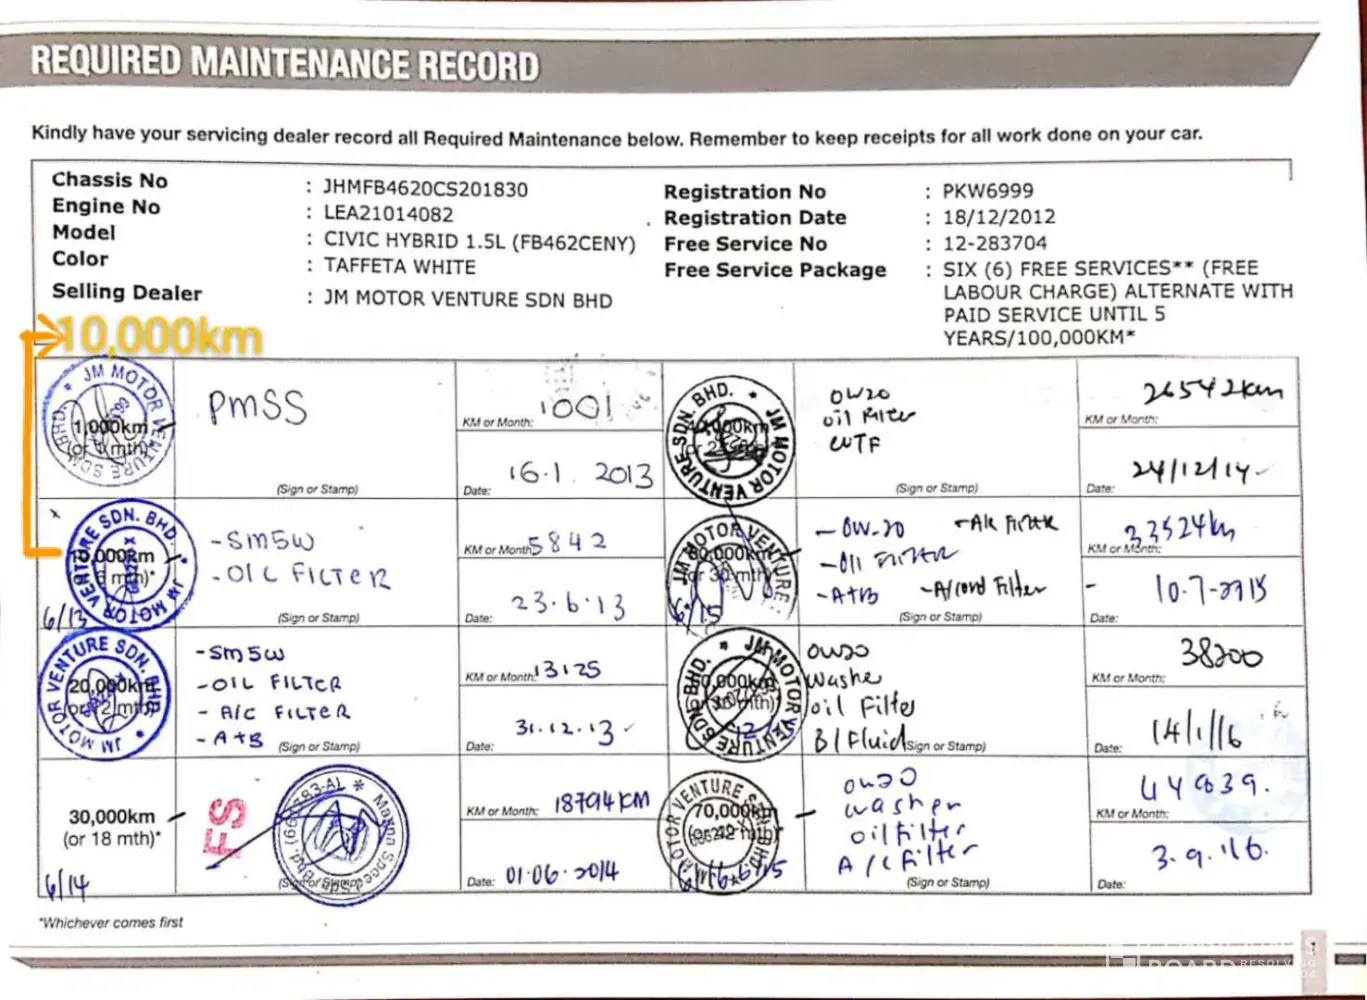 REQUIRED MAINTENANCE RECORD
Kindly have your servicing dealer record all Required Maintenance below. Remember to keep receipts for all work done on your car.
Chassis No : JHMFB4620CS201830
Engine No : LEA21014082
Model : CIVIC HYBRID 1.5L (FB462CENY)
Color : TAFFETA WHITE
Selling Dealer : JM MOTOR VENTURE SDN BHD
Registration No : PKW6999
Registration Date : 18/12/2012
Free Service No : 12-283704
Free Service Package : SIX (6) FREE SERVICES** (FREE
LABOUR CHARGE) ALTERNATE WITH
PAID SERVICE UNTIL 5
YEARS/100,000KM*
10,000km
JM MOTOR VENTURE SDN BHD.
1,000km
(or 1 mth)
PMSS
(Sign or Stamp)
KM or Month: 1001
Date: 16.1.2013
JM MOTOR VENTURE SDN. BHD.
10,000km
6 mth)*
6/13
- SM5W
- OIL FILTER
(Sign or Stamp)
KM or Month: 5842
Date: 23.6.13
JM MOTOR VENTURE SDN. BHD.
20,000km
(or 12 mth)
- SM5W
- OIL FILTER
- A/C FILTER
- A+B
(Sign or Stamp)
KM or Month: 13125
Date: 31.12.13
30,000km
(or 18 mth)*
6/14
FS
(Sign or Stamp)
KM or Month: 18794KM
Date: 01.06.2014
JM MOTOR VENTURE SDN. BHD.
OW20
oil Filter
WTF
(Sign or Stamp)
KM or Month: 26542km
Date: 24/12/14
JM MOTOR VENTURE
(or 30 mth)
- OW-20
- A/C Filter
- Oil FILTER
- A+B
(Sign or Stamp)
KM or Month: 33524km
Date: 10-7-2015
JM MOTOR VENTURE SDN. BHD.
OW20
Washer
oil Filter
B/Fluid
(Sign or Stamp)
KM or Month: 38200
Date: 14/1/16
MOTOR VENTURE SDN BHD
70,000km
OW20
washer
oil filter
A/C filter
(Sign or Stamp)
KM or Month: 44839.
Date: 3.9.16.
*Whichever comes first
1